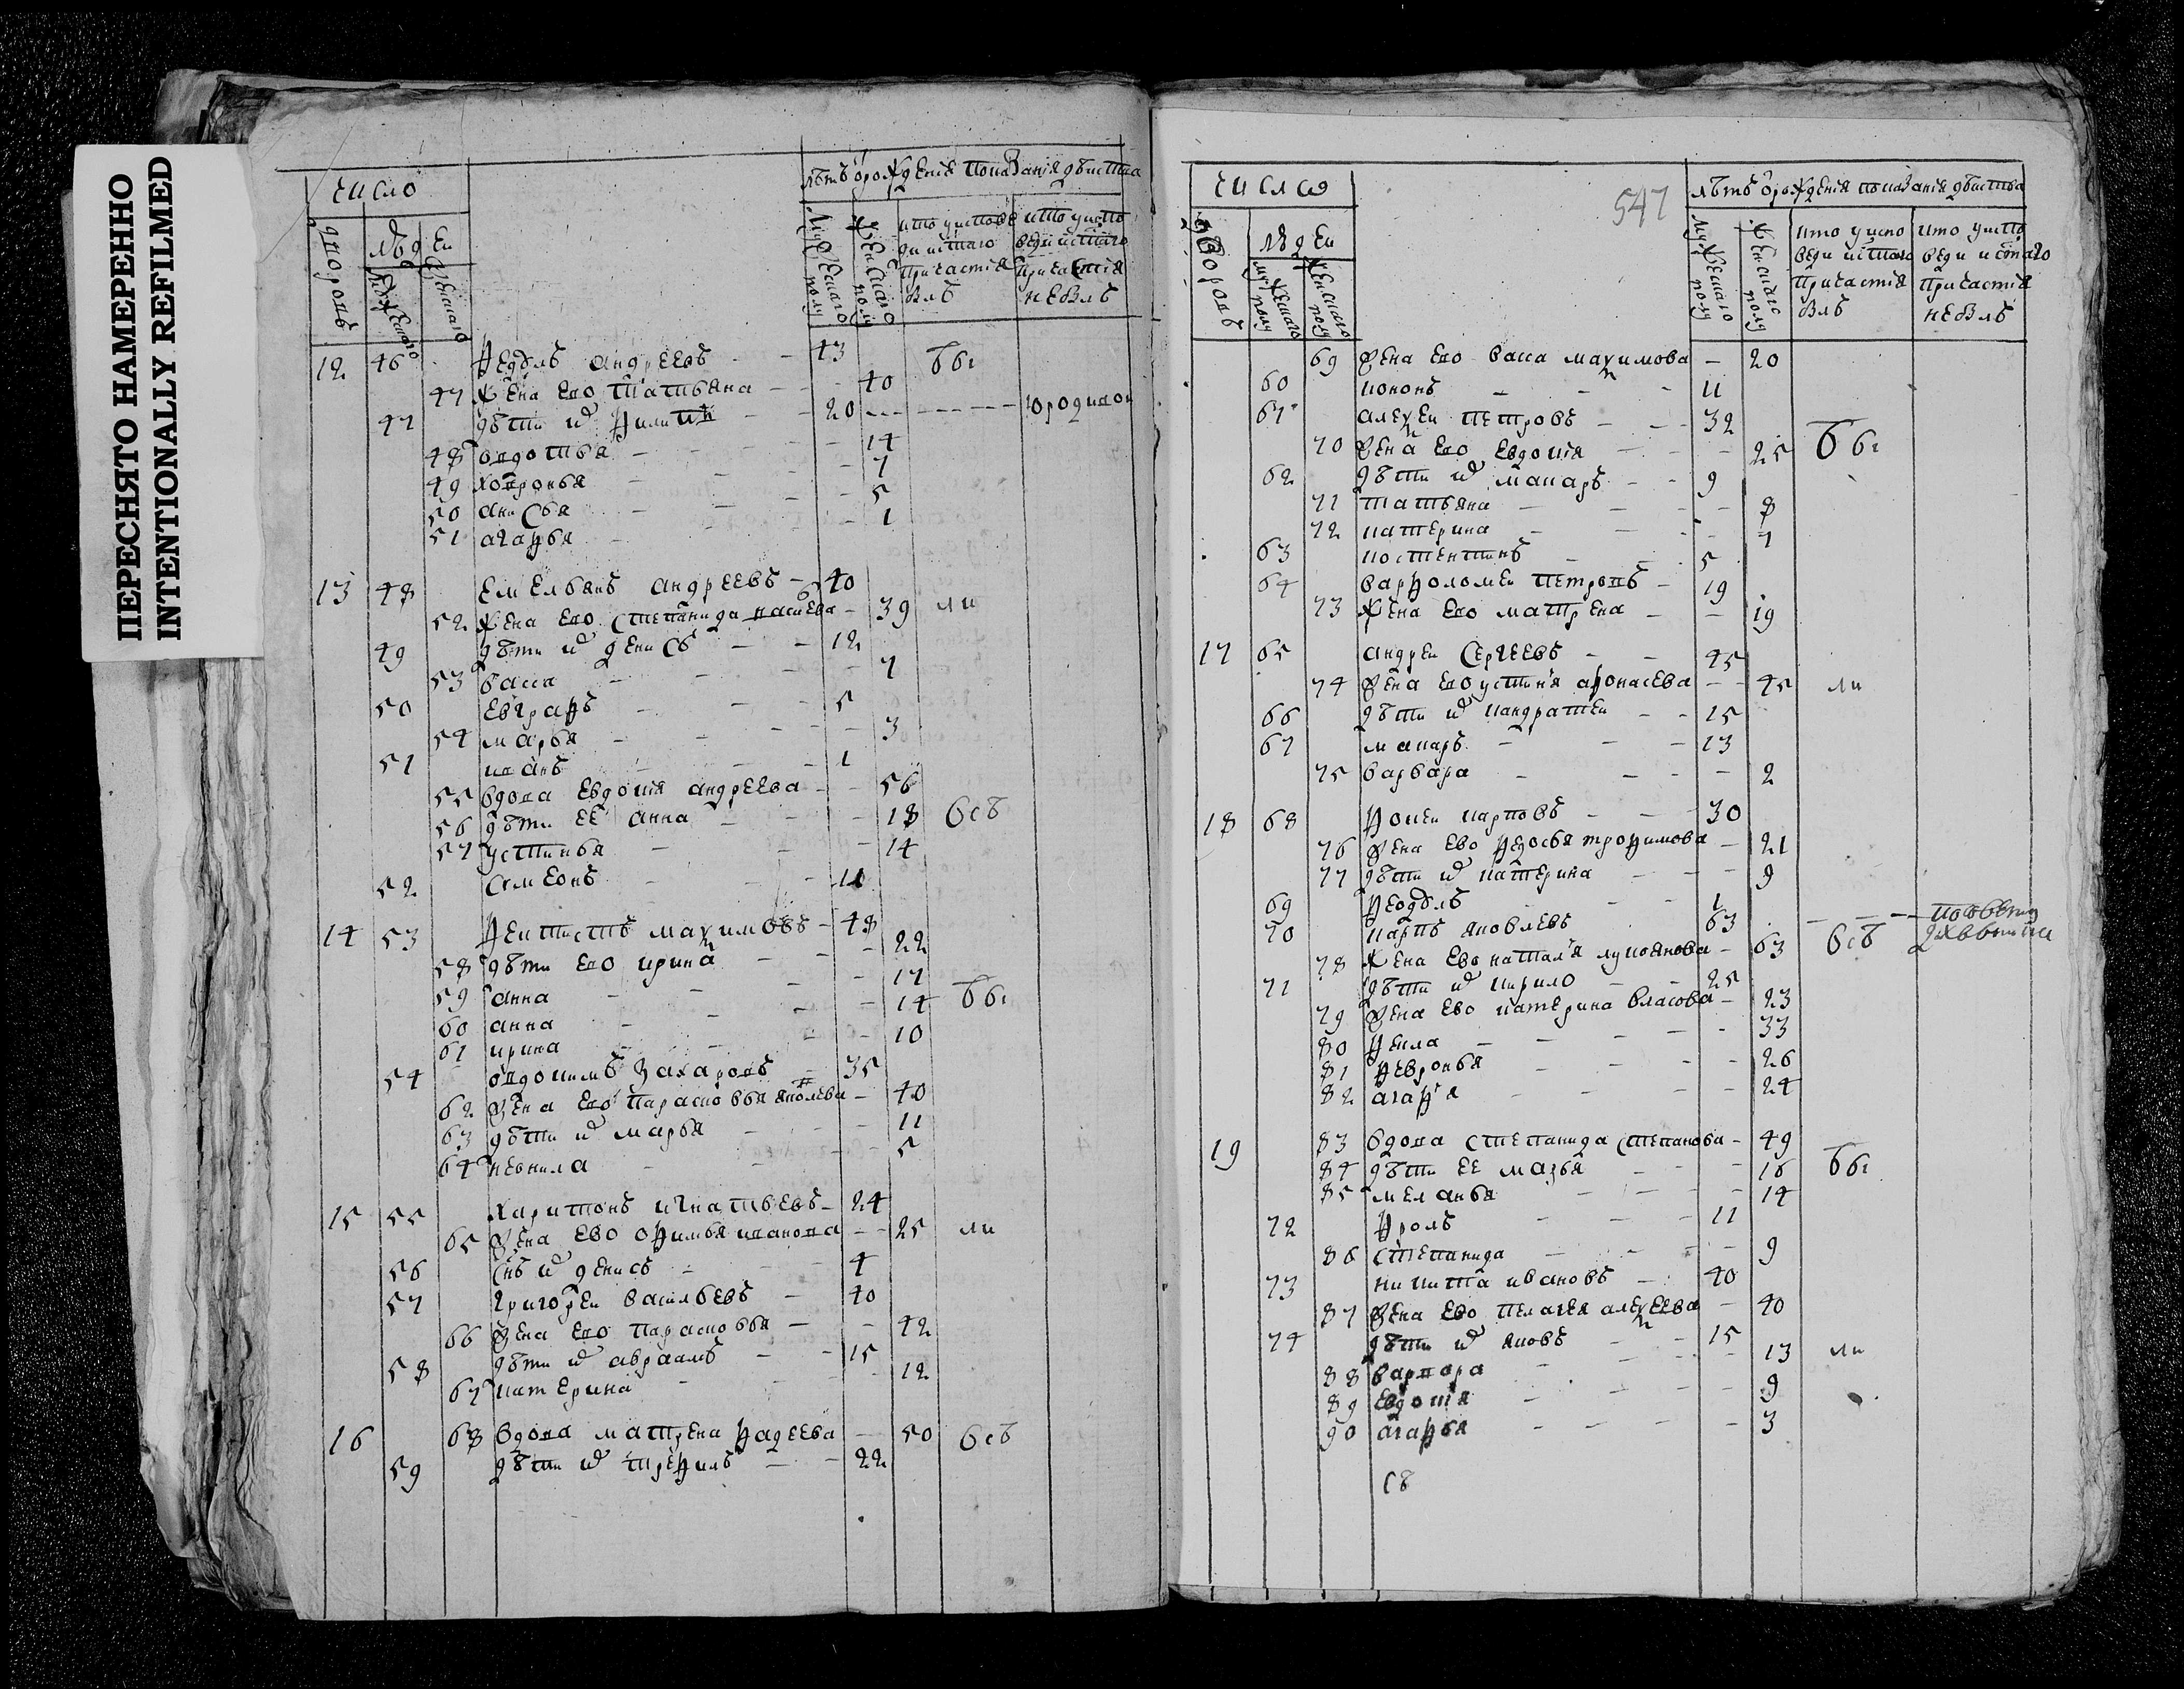 ПЕРЕСНЯТО НАМЕРЕННО
INTENTIONALLY REFILMED
число
лѣтъ ѿ рождения показания дѣиства
дворовъ
людеи
мужескаго
женскаго
мужескаго полу
женскаго полу
кто у исповеди и стаго причастия былъ
кто у исповеди и стаго причастия не былъ
12 46 Ѳедоръ андреевъ - 43 бы
47 жена ево татьяна - - 40
47 дѣти их Филипъ - - 20 - - - - юродивои
48 овдотья - - 14
49 ховронья - - 7
50 анисья - - 5
51 агаѳья - 1
13 48 Емельянъ андреевъ - 40
52 жена ево степанида - 39 ли
49 дѣти их денисъ - - 12
53 васса - - 7
50 евграѳъ - - 5
54 марья - - 3
51 иванъ - 1
55 вдова евдокия андреева - - 56
56 дѣти ее анна - - 18 всѣ
57 устинья - - 14
52 симеонъ - - 11
14 53 Ѳектистъ максимовъ - 48
58 дѣти ево ирина - - 22
59 анна - - 17
60 анна - - 14 бы
61 ирина - - 10
54 овдокимъ захаровъ - 35
62 жена ево парасковья яковлева - 40
63 дѣти их марья - - 11
64 невнила - - 5
15 55 харитонъ игнатьевъ - 24
65 жена ево оѳимья иванова - - 25 ли
56 снъ их денисъ - 4
57 григореи васильевъ - 40
66 жена ево парасковья - - 42
58 дѣти их авраамъ - - 15
67 катерина - - 12
16 68 вдова матрена ѳадеева - 50 всѣ
59 дѣти их треѳилъ - - 22
547
число
лѣтъ ѿ рождения показания дѣиства
дворовъ
людеи
мужескаго полу
женскаго полу
мужескаго полу
женскаго полу
кто у исповеди и стаго причастия былъ
кто у исповеди и стаго причастия не былъ
69 жена ево васса максимова - 20
60 кононъ - - 11
61 алексеи петровъ - - 32
70 жена ево евдокия - - 25 бы
62 дѣти их макаръ - - 9
71 татьяна - - 8
72 катерина - - 7
63 костентинъ - - 5
64 варѳоломеи петровъ - 19
73 жена ево матрена - - 19
17 65 андреи сергеевъ - - 45
74 жена ево устиня аѳонасева - - 45 ли
66 дѣти их кандратеи - - 15
67 макаръ - - 13
75 варвара - - 2
18 68 Ѳокеи карповъ - - 30
76 жена ево ѳедосья троѳимова - 21
77 дѣти их катерина - - 9
69 ѳеодоръ - - 1
70 карпъ яковлевъ 63 - - -
78 жена ево наталя лукоянова - 63 всѣ
71 дѣти их кирило - - 25
79 жена ево катерина власова - 23
80 ѳекла - - 33
81 ѳевронья - - 26
82 агаѳя - - 24
19 83 вдова степанида степанова - 49
84 дѣти ее марья - - 16 бы
85 меланья - - 14
72 ѳролъ - - 11
86 степанида - - 9
73 никита ивановъ - 40
87 жена ево пелагея алексеева - 40
74 дѣти их яковъ - - 15
88 варвара - - 13 ли
89 евдокия - - 9
90 агаѳья - - 3
св